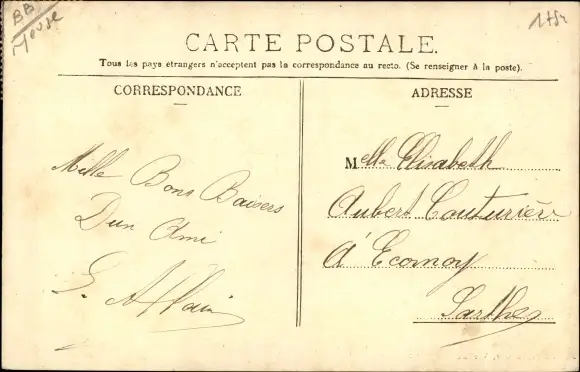 BB
Meuse
CARTE POSTALE.
Tous les pays étrangers n'acceptent pas la correspondance au recto. (Se renseigner à la poste).
CORRESPONDANCE
Mille Bons Baisers
Dun Ami
G.
ADRESSE
Melle Elisabeth
Aubert Couturière
à Ecomoy
Sarthe